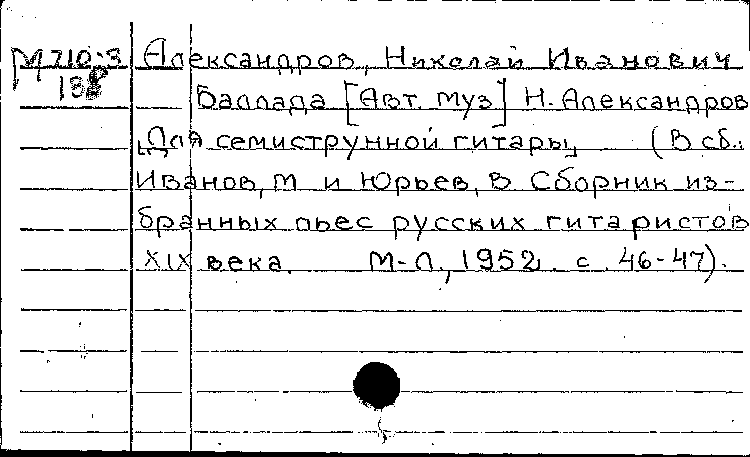 М 710:3 Александров, Николай Иванович
Баллада [Авт. муз] Н. Александров
„Для семиструнной гитары„ (В сб.:
Иванов, М и Юрьев, В Сборник из-
бранных пьес русских гитаристов
XIX века. М-Л., 1952. с. 46-47).